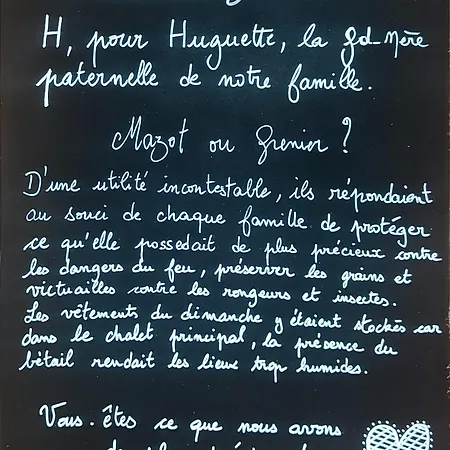 H, pour Huguette, la gd-Mère
paternelle de notre famille.
Mazot ou Grenier ?
D'une utilité incontestable, ils répondaient
au souci de chaque famille de protéger
ce qu'elle possedait de plus précieux contre
les dangers du feu, préserver les grains et
victuailles contre les rongeurs et insectes.
Les vêtements du dimanche y étaient stockés car
dans le chalet principal, la présence du
bétail rendait les lieux trop humides.
Vous êtes ce que nous avons